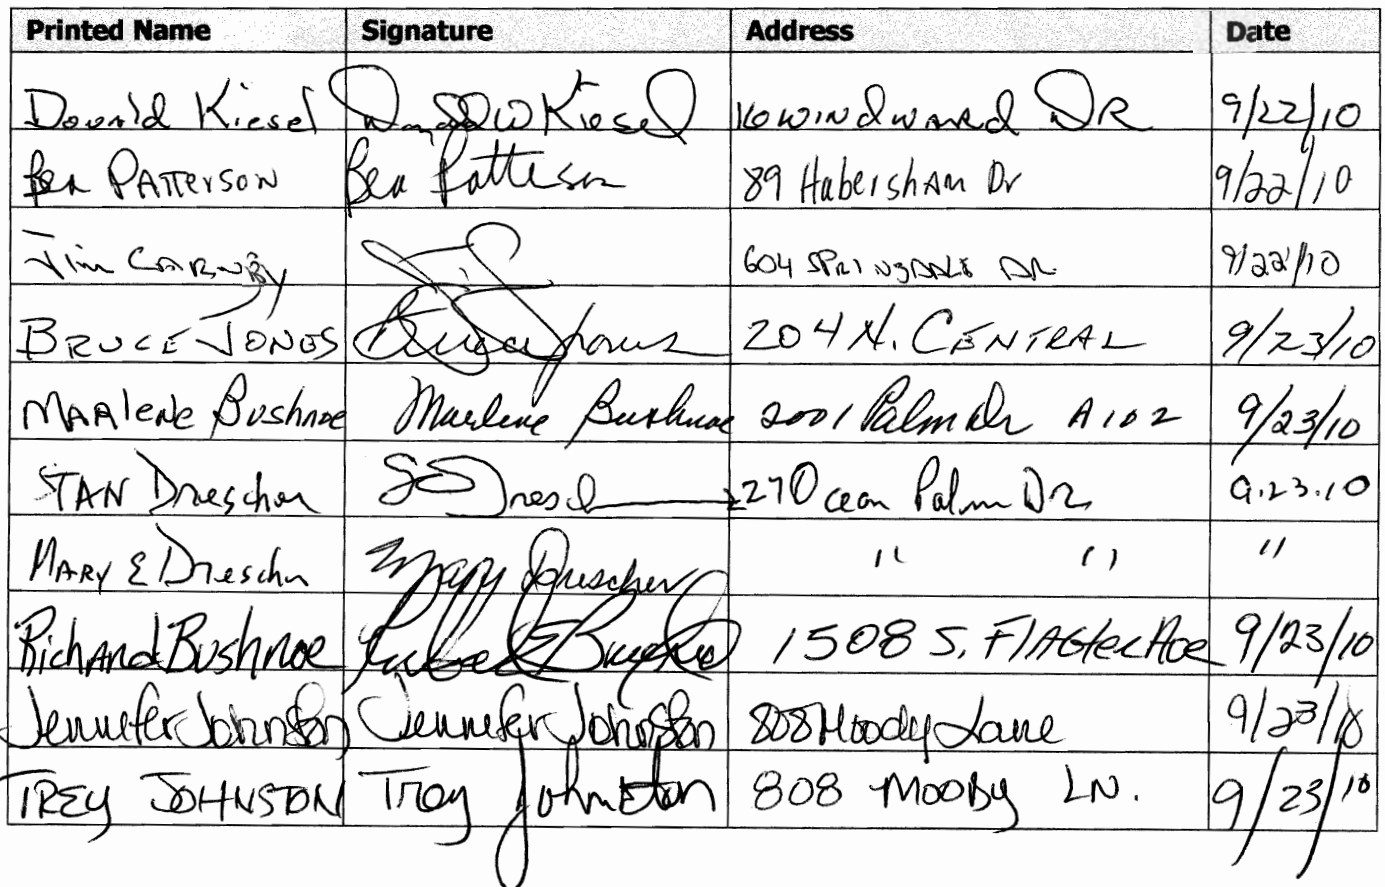 Printed Name Signature Address Date
Donald Kiesel Donald W Kiesel 16 WINdWARd DR 9/22/10
Ben PATTERSON Ben Patterson 89 Habersham Dr 9/22/10
Jim CARNBY 604 SPRINGDALE DR 9/22/10
BRUCE JONES Bruce Jones 204 N. CENTRAL 9/23/10
MARlENE Bushnoe Marlene Bushnoe 2001 Palm Dr A102 9/23/10
STAN Drescher S Dresch 227 Ocean Palm DR 9.23.10
MARY E Drescher Mary Drescher " " "
RicHARd Bushnoe 1508 S. FlAGler Ave 9/23/10
Jennifer Johnston Jennifer Johnston 808 Moody Lane 9/23/10
TREY JOHNSTON Trey Johnston 808 MOODY LN. 9/23/10